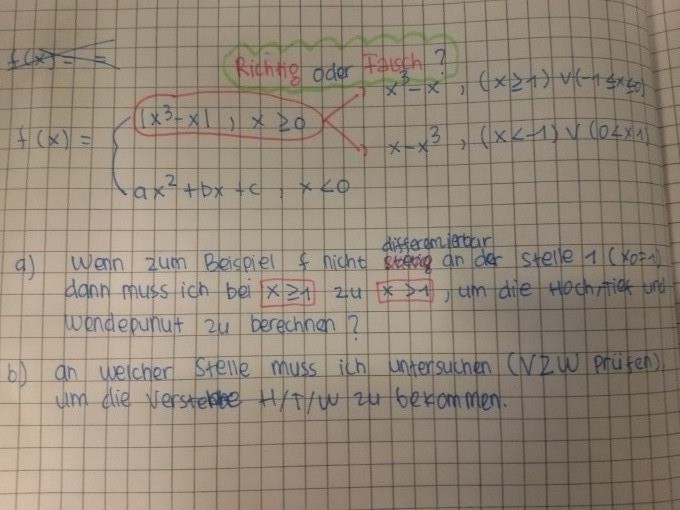 f(x) = =
Richtig oder Falsch?
x³-x , (x≥1) ∨ (-1≤x≤0)
f(x) = { |x³-x| , x ≥ 0
x-x³ , (x<-1) ∨ (0<x<1)
ax²+bx+c , x<0
differenzierbar
a) Wenn zum Beispiel f nicht stetig an der Stelle 1 (x0=1)
dann muss ich bei x≥1 zu x>1, um die Hoch, tief und
Wendepunut zu berechnen?
b) an welcher Stelle muss ich untersuchen (VZW prüfen)
um die H/T/W zu bekommen.